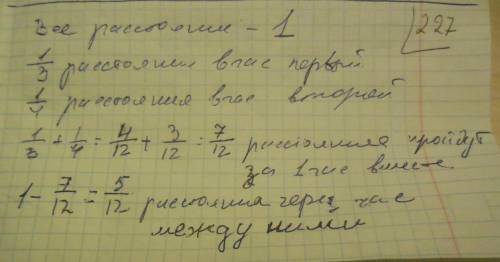 Все расстояние - 1
227
1/3 расстояния в час первый
1/4 расстояния в час второй
1/3 + 1/4 = 4/12 + 3/12 = 7/12 расстояния пройдут
за 1 час вместе
1 - 7/12 = 5/12 расстояния через час
между ними